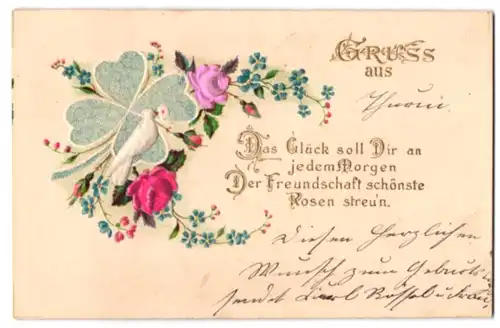 GRUSS
aus
Das Glück soll Dir an
jedem Morgen
Der Freundschaft schönste
Rosen streu'n.
Diesen herzlichen
Wunsch zum Geburts
sendet Karl